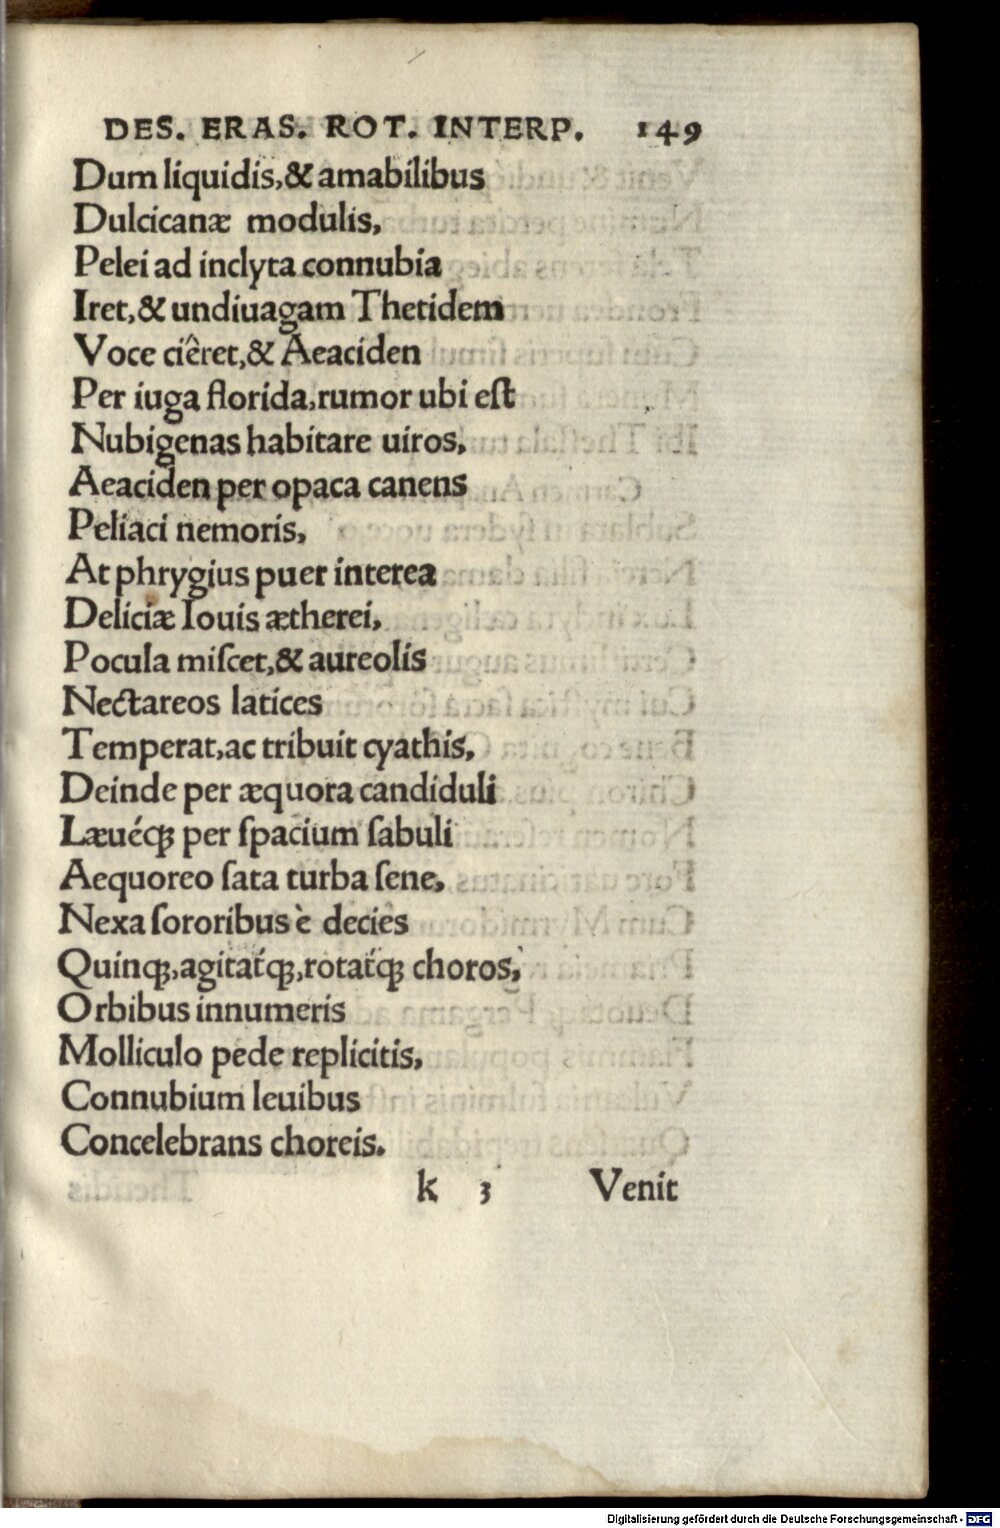 DES. ERAS. ROT. INTERP. 149
Dum liquidis,& amabilibus
Dulcicanæ modulis,
Pelei ad inclyta connubia
Iret,& undiuagam Thetidem
Voce ciêret,& Aeaciden
Per iuga florida,rumor ubi eſt
Nubigenas habitare uiros,
Aeaciden per opaca canens
Peliaci nemoris,
At phrygius puer interea
Deliciæ Iouis ætherei,
Pocula miſcet,& aureolis
Nectareos latices
Temperat,ac tribuit cyathis,
Deinde per æquora candiduli
Læuéqꝫ per ſpacium ſabuli
Aequoreo ſata turba ſene,
Nexa ſororibus è decies
Quinqꝫ,agitat́qꝫ,rotat́qꝫ choros,
Orbibus innumeris
Molliculo pede replicitis,
Connubium leuibus
Concelebrans choreis.
k 3 Venit
Digitalisierung gefördert durch die Deutsche Forschungsgemeinschaft - DFG